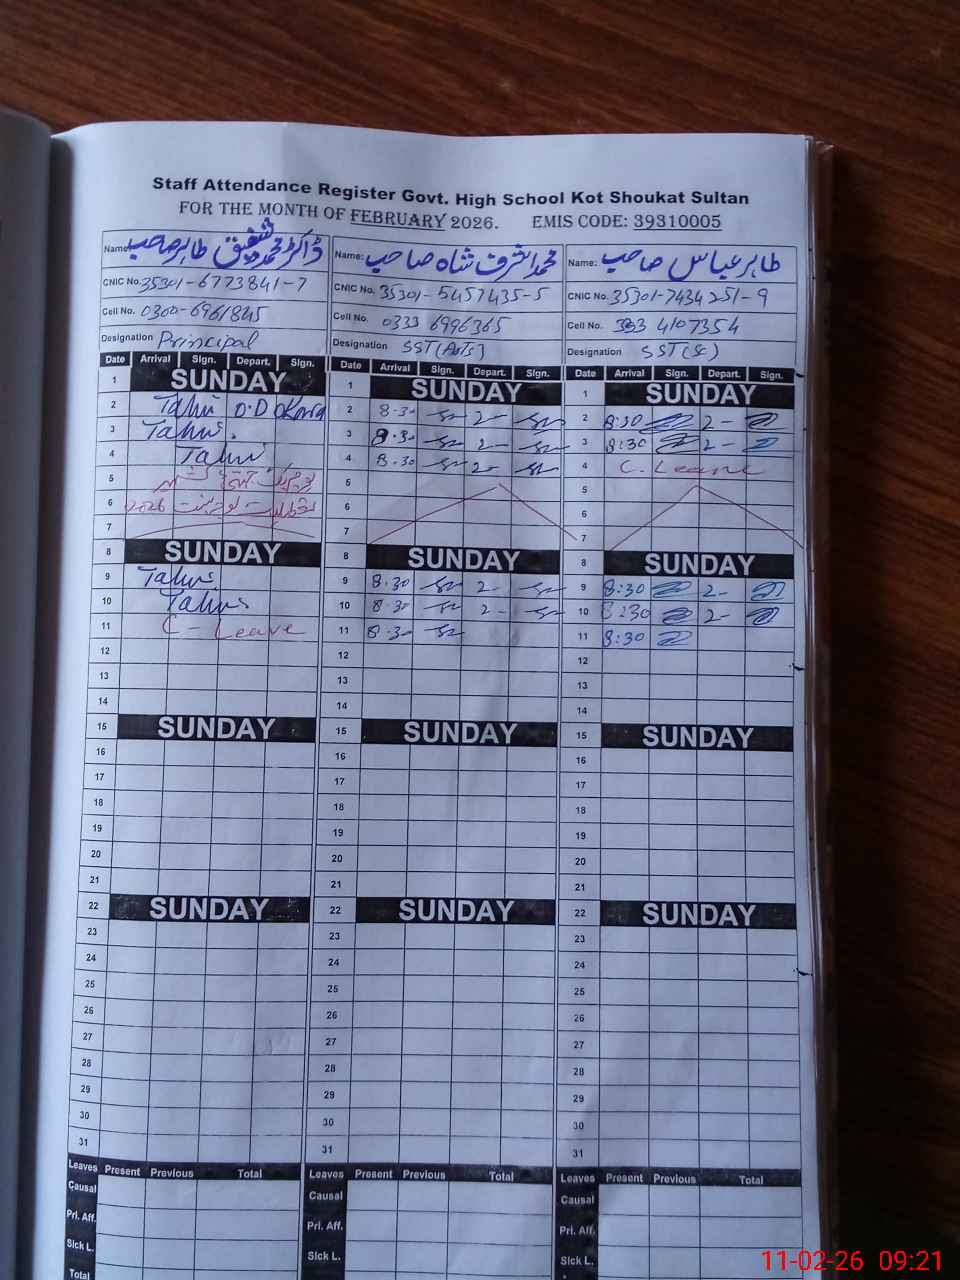 Staff Attendance Register Govt. High School Kot Shoukat Sultan
FOR THE MONTH OF FEBRUARY 2026. EMIS CODE: 39310005
Name: ڈاکٹر محمد شفیق طاہر صاحب
CNIC No. 35301-6773841-7
Cell No. 0300-6961845
Designation Principal
Date Arrival Sign. Depart. Sign.
1 SUNDAY
2 Tahir O.D Okara
3 Tahir.
4 Tahir
5
6 تعطیلات 2026
7
8 SUNDAY
9 Tahir
10 Tahir
11 C-Leave
12
13
14
15 SUNDAY
16
17
18
19
20
21
22 SUNDAY
23
24
25
26
27
28
29
30
31
Leaves Present Previous Total
Causal
Pri. Aff.
Sick L.
Total
Name: محمد اشرف شاہ صاحب
CNIC No. 35301-5457435-5
Cell No. 0333 6996365
Designation SST(Arts)
Date Arrival Sign. Depart. Sign.
1 SUNDAY
2 8.30 2-
3 8.30 2-
4 8.30 2-
5
6
7
8 SUNDAY
9 8.30 2-
10 8.30 2-
11 8.30
12
13
14
15 SUNDAY
16
17
18
19
20
21
22 SUNDAY
23
24
25
26
27
28
29
30
31
Leaves Present Previous Total
Causal
Pri. Aff.
Sick L.
Name: طاہر عباس صاحب
CNIC No. 35301-7434251-9
Cell No. 333 4107354
Designation SST(Sc)
Date Arrival Sign. Depart. Sign.
1 SUNDAY
2 8:30 2-
3 8:30 2-
4 C.Leave
5
6
7
8 SUNDAY
9 8:30 2-
10 8:30 2-
11 8:30
12
13
14
15 SUNDAY
16
17
18
19
20
21
22 SUNDAY
23
24
25
26
27
28
29
30
31
Leaves Present Previous Total
Causal
Pri. Aff.
Sick L.
11-02-26 09:21